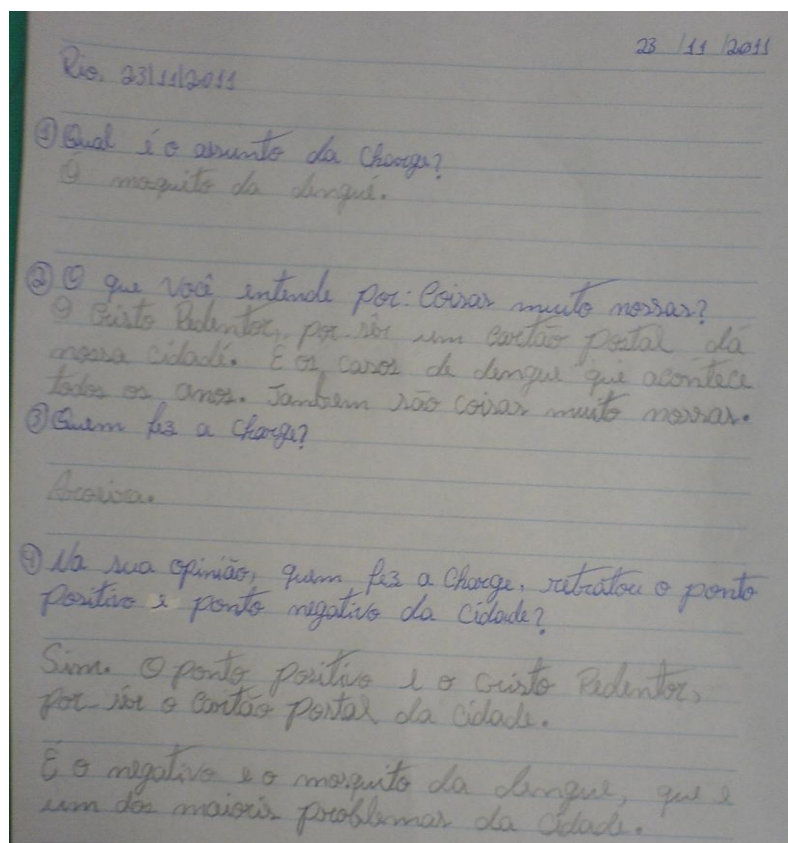 23 /11 /2011
Rio, 23/11/2011
① Qual é o assunto da Charge?
O moquito da dengue.
② O que você entende por: Coisas muito nossas?
O Cristo Redentor, por sêr um cartão postal dá
nossa cidade. E os casos de dengue que acontece
todos os anos. Tambem são coisas muito nossas.
③ Quem fez a Charge?
④ Na sua opinião, quem fez a Charge, retratou o ponto
positivo e ponto negativo da Cidade?
Sim. O ponto positivo e o cristo Redentor,
por sêr o cartão postal da cidade.
E o negativo e o mosquito da dengue, que e
um dos maiores problemas da cidade.